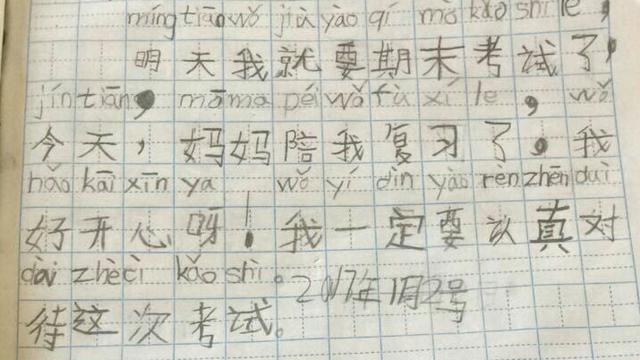 míng tiān wǒ jiù yào qí mò kǎo shì le，
明天我就要期末考试了，
jín tiān， mā ma péi wǒ fù xí le， wǒ
今天，妈妈陪我复习了，我
hǎo kāi xīn ya wǒ yí dìn yào rèn zhēn duì
好开心呀！我一定要认真对
dài zhè cì kǎo shì。
待这次考试。2017年1月2号